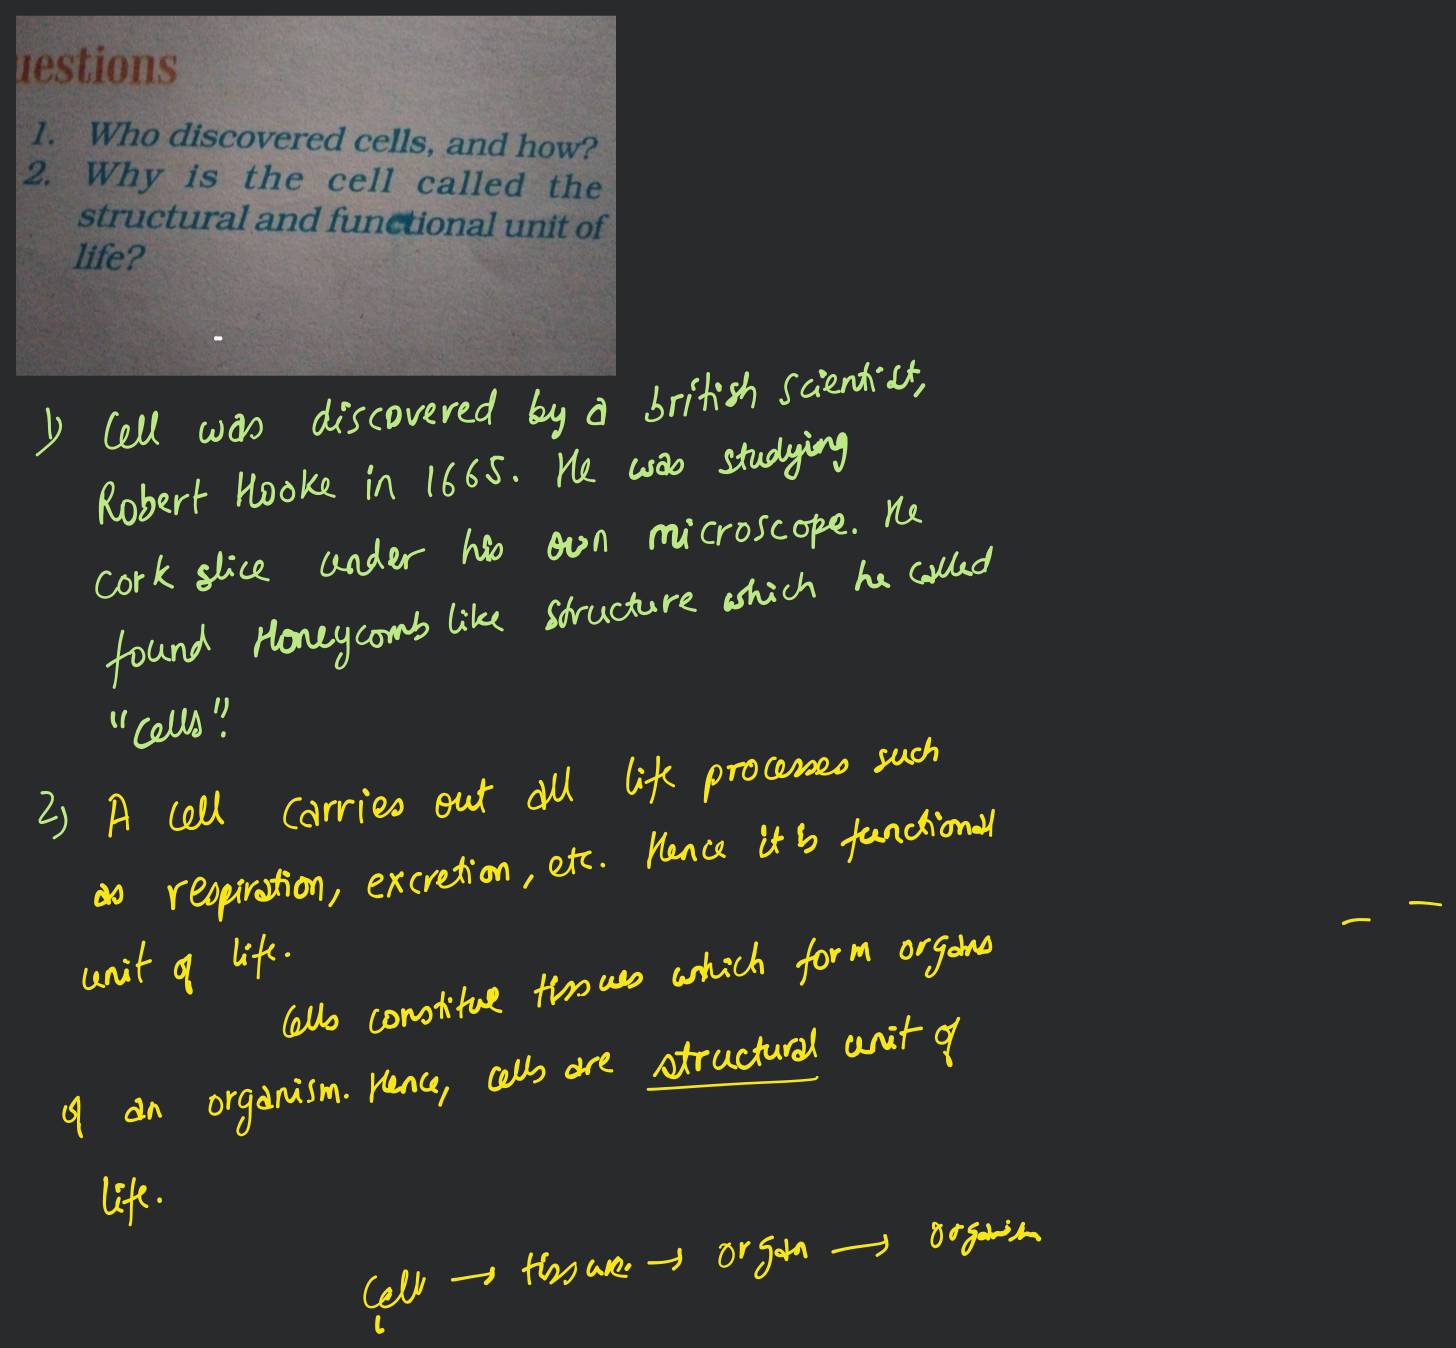 uestions
1. Who discovered cells, and how?
2. Why is the cell called the
structural and functional unit of
life?
1) Cell was discovered by a british scientist,
Robert Hooke in 1665. He was studying
cork slice under his own microscope. He
found Honeycomb like structure which he called
"cells".
2) A cell carries out all life processes such
as respiration, excretion, etc. Hence it is functional
unit of life.
Cells constitue tissues which form organs
of an organism. Hence, cells are structural unit of
life.
Cell → tissue → organ → organism